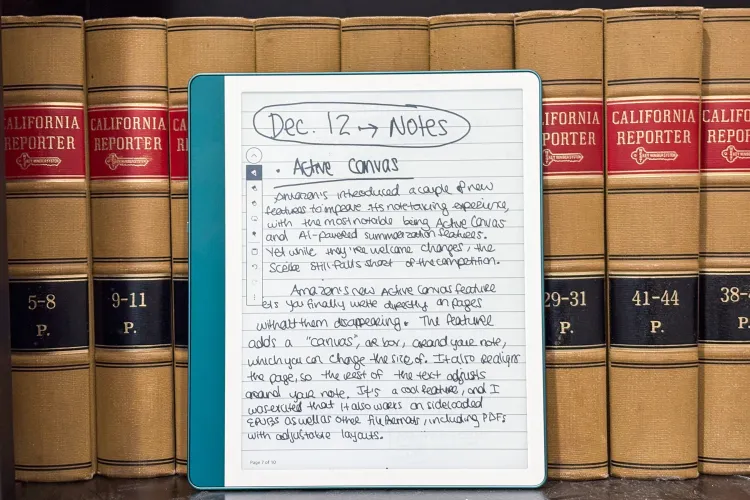 CALIFORNIA
REPORTER
KEY NUMBER SYSTEM
5-8
P.
CALIFORNIA
REPORTER
KEY NUMBER SYSTEM
9-11
P.
CA
R
Dec. 12 → Notes
• Active Canvas
Amazon's introduced a couple of new
features to improve its notetaking experience,
with the most notable being Active Canvas
and AI-powered summarization features.
Yet while they're welcome changes, the
Scribe still falls short of the competition.
Amazon's new Active Canvas feature
lets you finally write directly on pages
without them disappearing. The feature
adds a "canvas", or box, around your note,
which you can change the size of. It also realigns
the page, so the rest of the text adjusts
around your note. It's a cool feature, and I
was excited that it also works on sideloaded
EPUBs as well as other file formats, including PDFs
with adjustable layouts.
Page 7 of 10
CALIFORNIA
REPORTER
29-31
P.
CALIFORNIA
REPORTER
KEY NUMBER SYSTEM
41-44
P.
CALIFOR
REPORT
38-4
P.